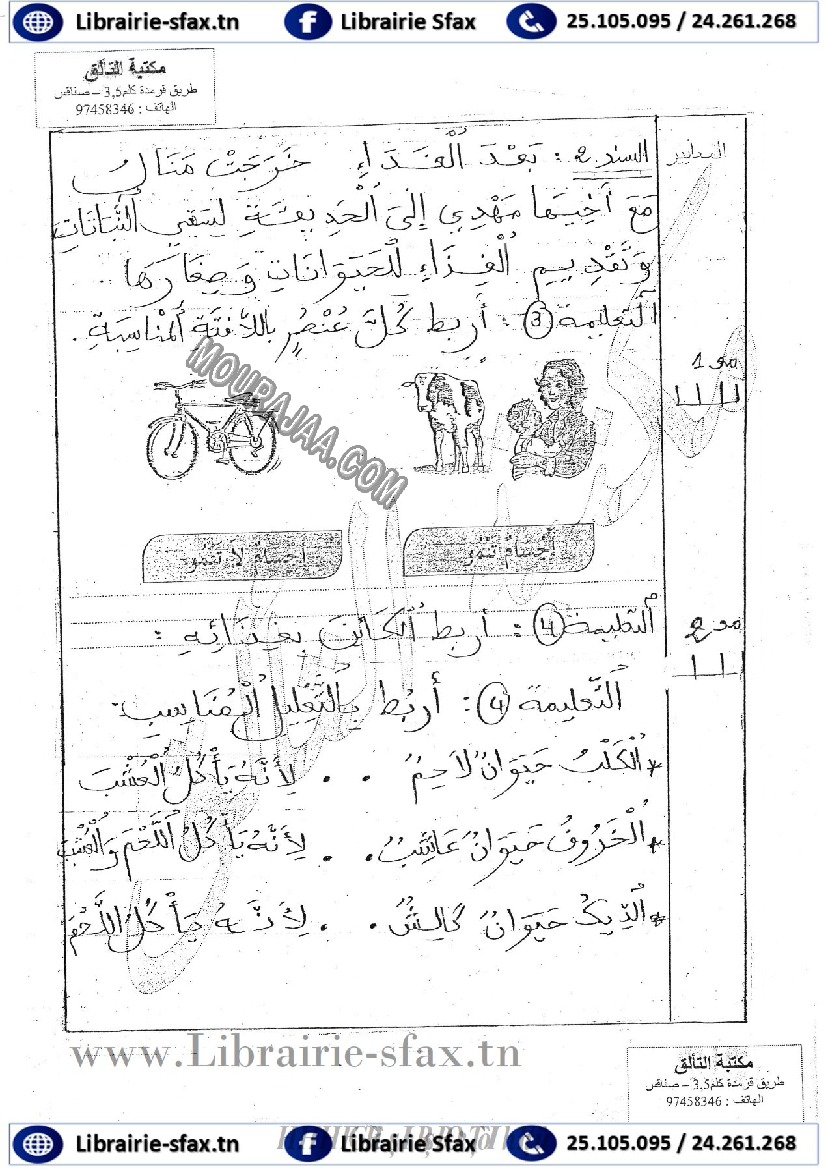 Librairie-sfax.tn Librairie Sfax 25.105.095 / 24.261.268
مكتبة التألق
طريق قرمدة كلم3,5 – صفاقس
الهاتف : 97458346
المعايير
السند 2 : بَعْدَ الْغَدَاءِ خَرَجَتْ مَنَالُ
مَعَ أَخِيهَا مَهْدِي إِلَى الْحَدِيقَةِ لِسَقْيِ النَّبَاتَاتِ
وَتَقْدِيمِ الْغِذَاءِ لِلْحَيَوَانَاتِ وَصِغَارِهَا.
التعليمة 3 : أربط كُلَّ عُنْصُرٍ بِاللَّافِتَةِ الْمُنَاسِبَةِ.
مع 1
MOURAJAA.COM
أجسام تنمو
أجسام لا تنمو
التعليمة 4 : أربط الكَائِنَ بِغِذَائِهِ :
مع 2
التَّعْلِيمة 4 : أَرْبِطُ بِالتَّعْلِيلِ الْمُنَاسِبِ:
* الْكَلْبُ حَيَوَانٌ لَاحِمٌ . . لِأَنَّهُ يَأْكُلُ الْعُشْبَ
* الْخَرُوفُ حَيَوَانٌ عَاشِبٌ . . لِأَنَّهُ يَأْكُلُ اللَّحْمَ وَالْعُشْبَ
* الدِّيكُ حَيَوَانٌ كَالِشٌ . . لِأَنَّهُ يَأْكُلُ اللَّحْمَ
www.Librairie-sfax.tn
مكتبة التألق
طريق قرمدة كلم3,5 – صفاقس
الهاتف : 97458346
Librairie-sfax.tn Librairie Sfax 25.105.095 / 24.261.268